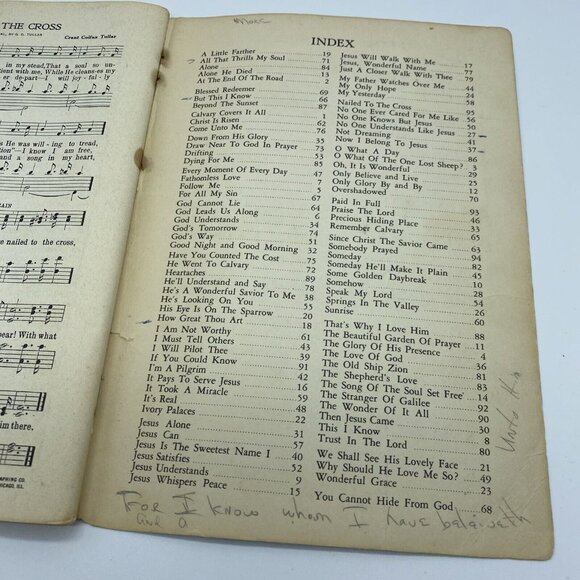 MORE
INDEX
A Little Farther 19
All That Thrills My Soul 71
Alone 84
Alone He Died 13
At The End Of The Road 2
Blessed Redeemer 69
But This I Know 66
Beyond The Sunset 87
Calvary Covers It All 1
Christ Is Risen 62
Come Unto Me 76
Down From His Glory 35
Draw Near To God In Prayer 73
Drifting 53
Dying For Me 85
Every Moment of Every Day 47
Fathomless Love
Follow Me 7
For All My Sin 5
God Cannot Lie 67
God Leads Us Along 64
God Understands 6
God's Tomorrow 34
God's Way 74
Good Night and Good Morning 32
Have You Counted The Cost 75
He Went To Calvary 72
Heartaches
He'll Understand and Say 89
He's A Wonderful Savior To Me 38
He's Looking On You
His Eye Is On The Sparrow 55
How Great Thou Art 20
I Am Not Worthy 18
I Must Tell Others 61
I Will Pilot Thee 43
If You Could Know 39
I'm A Pilgrim 91
It Pays To Serve Jesus 42
It Took A Miracle 16
It's Real 59
Ivory Palaces 48
Jesus Alone 22
Jesus Can 31
Jesus Is The Sweetest Name I 57
Jesus Satisfies 52
Jesus Understands 9
Jesus Whispers Peace 15
Jesus Will Walk With Me 17
Jesus, Wonderful Name 77
Just A Closer Walk With Thee 79
My Father Watches Over Me 44
My Only Hope 24
My Yesterday 58
Nailed To The Cross 95
No One Ever Cared For Me Like 56
No One Knows But Jesus 50
No One Understands Like Jesus 27
Not Dreaming 41
Now I Belong To Jesus 37
O What A Day 86
O What Of The One Lost Sheep? 3
Oh, It Is Wonderful 29
Only Believe and Live 25
Only Glory By and By 12
Overshadowed 70
Paid In Full 93
Praise The Lord 46
Precious Hiding Place 33
Remember Calvary 65
Since Christ The Savior Came 63
Somebody Prayed 94
Someday
Someday He'll Make It Plain 45
Some Golden Daybreak 10
Somehow
Speak My Lord 28
Springs In The Valley 54
Sunrise 26
That's Why I Love Him 88
The Beautiful Garden Of Prayer 11
The Glory Of His Presence 4
The Love Of God 36
The Old Ship Zion 82
The Shepherd's Love 83
The Song Of The Soul Set Free 14
The Stranger Of Galilee 92
The Wonder Of It All 90
Then Jesus Came 30
This I Know 8
Trust In The Lord 80
We Shall See His Lovely Face 21
Why Should He Love Me So? 49
Wonderful Grace 23
You Cannot Hide From God 68
For I Know whom I have believeth
and a
Unto Him
THE CROSS
Grant Colfax Tullar
in my stead, That a soul so un-
tient with me, While He cleans-es my
er de-part- I will joy-ful-ly
He was will-ing to tread,
tion" I know I am free,
and a song in my heart,
re nailed to the cross,
pear! With what
im there.
APHING CO.
CHICAGO, ILL.